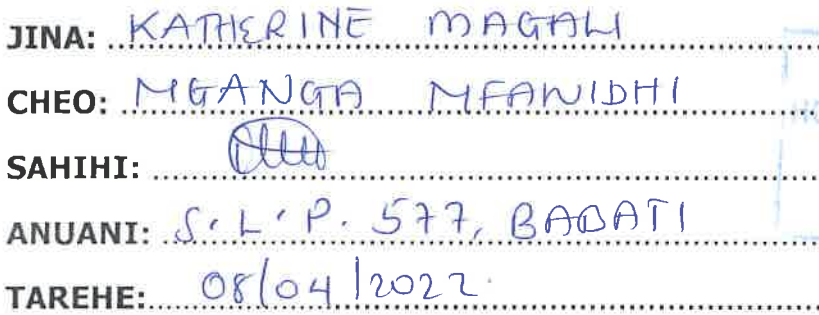 JINA: KATHERINE MAGALI
CHEO: MGANGA MFAWIDHI
SAHIHI:
ANUANI: S.L.P. 577, BABATI
TAREHE: 08/04/2022